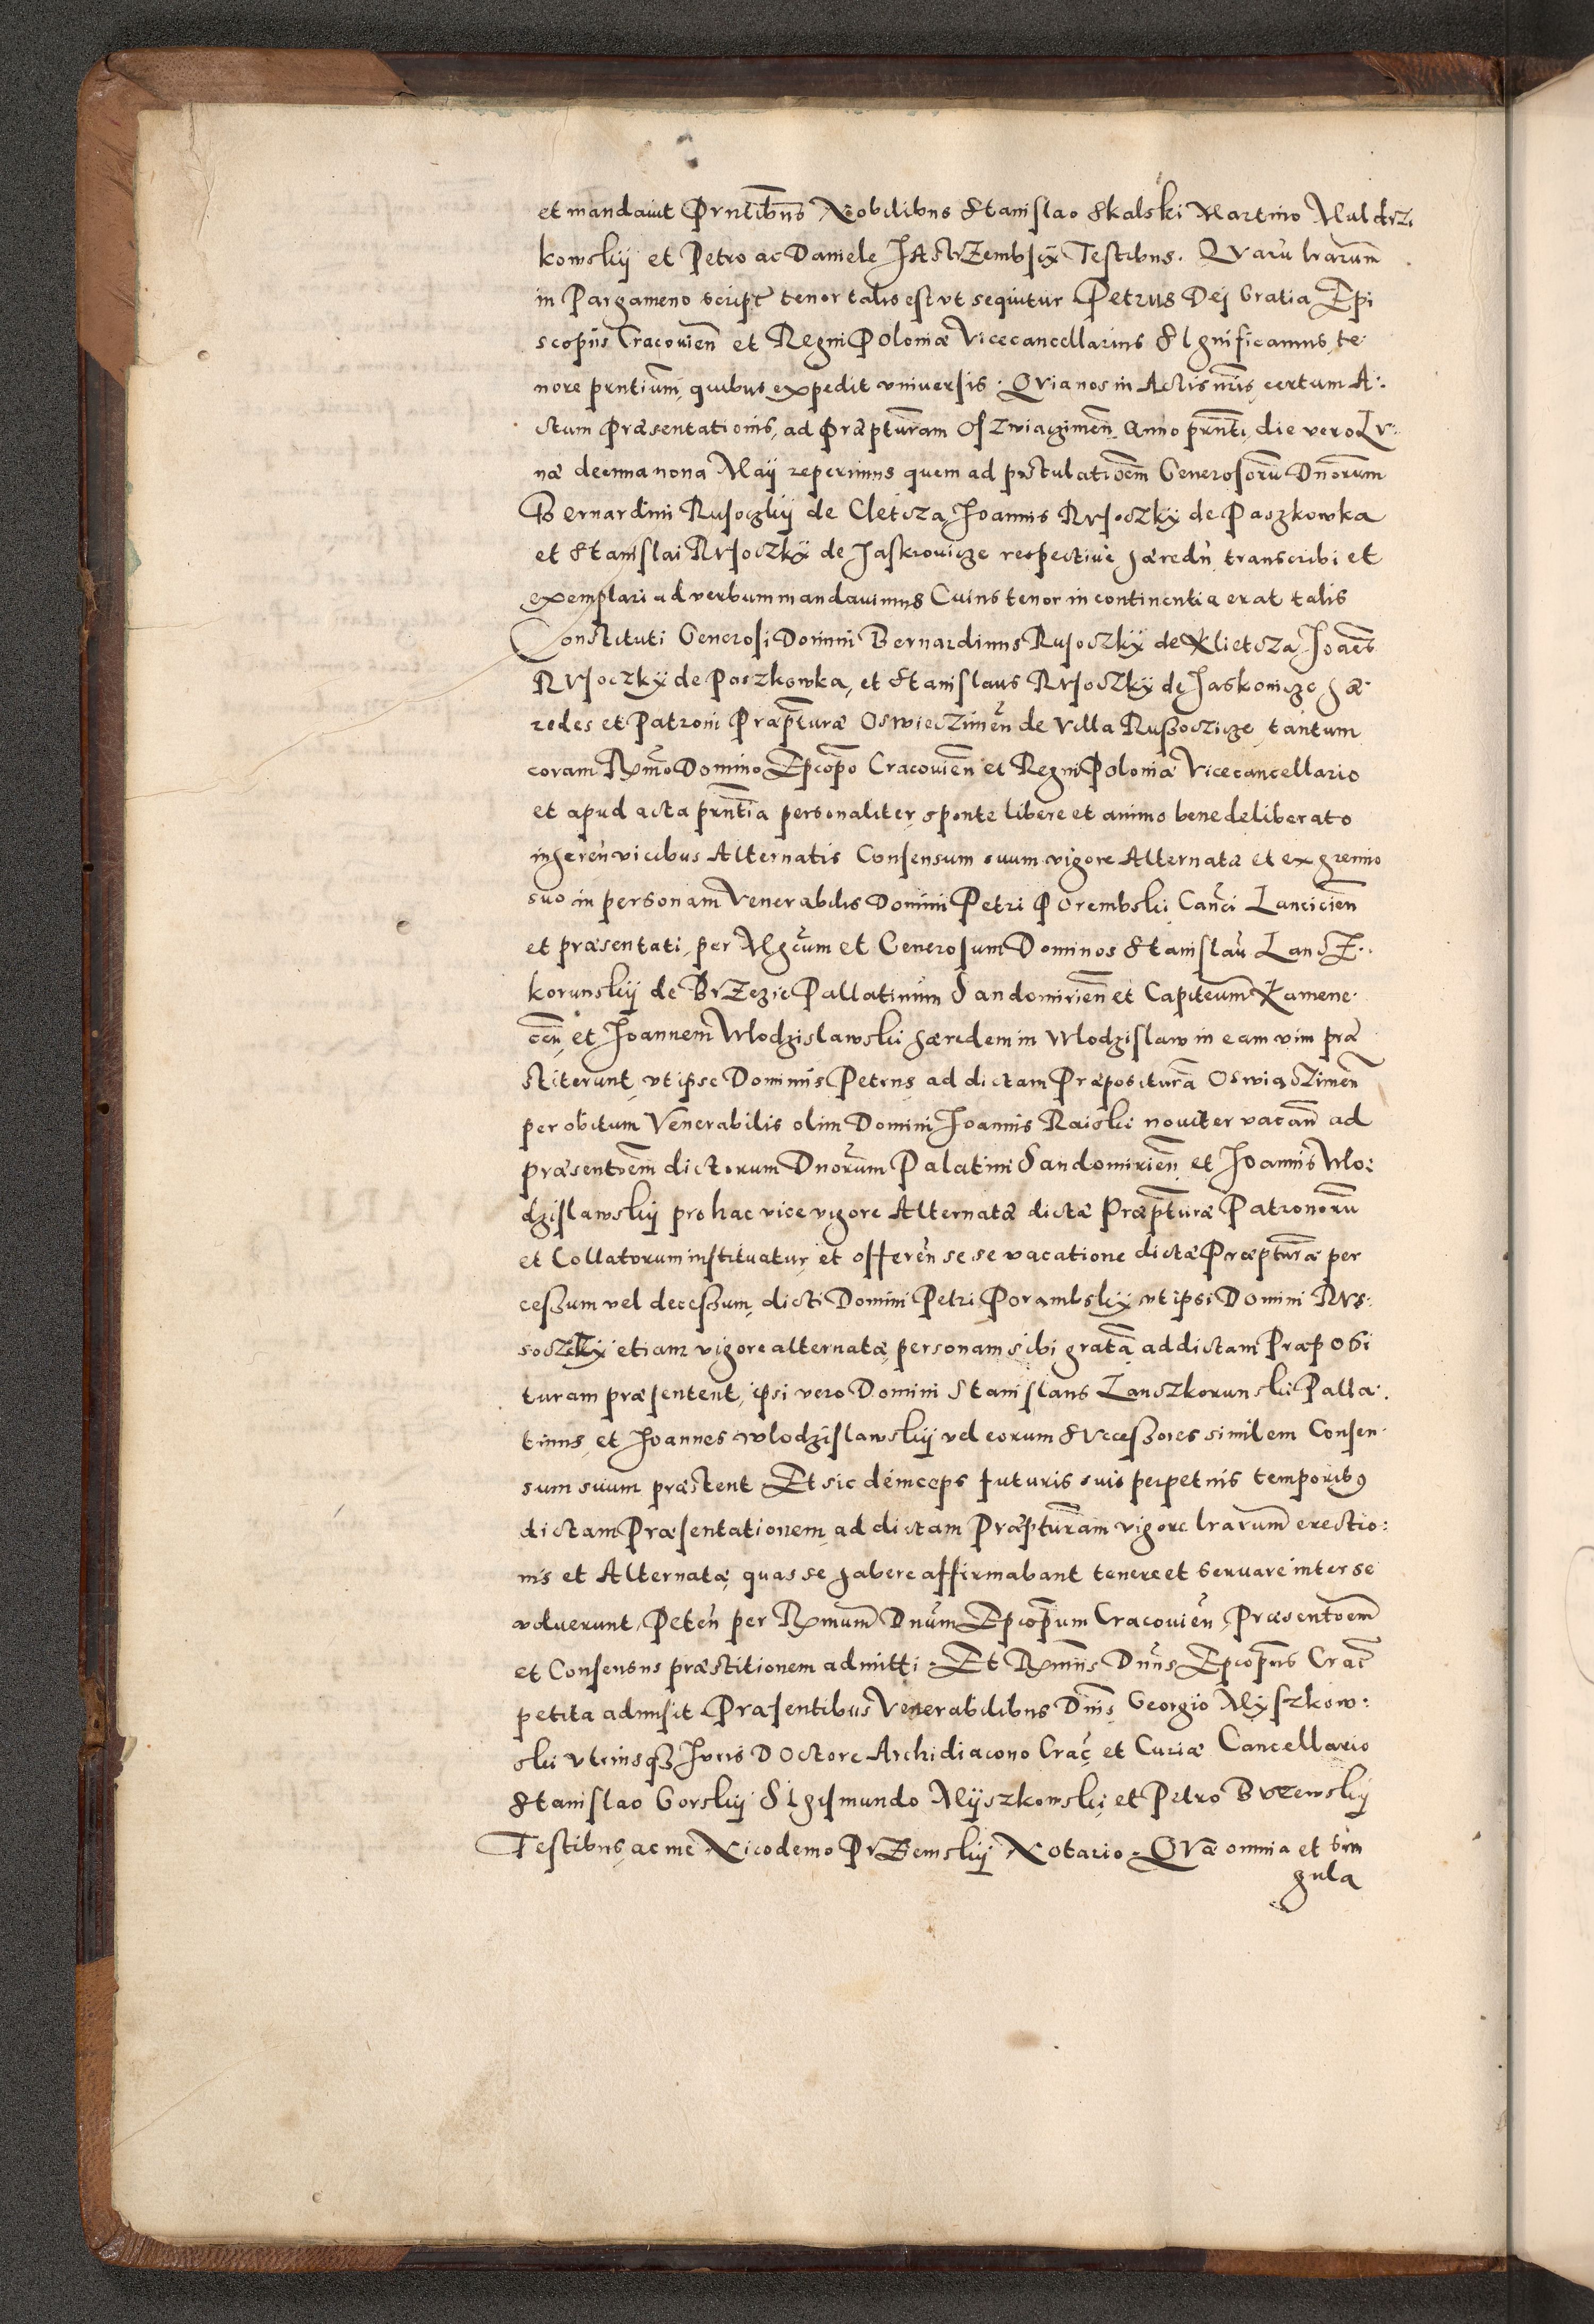 et mandavit Prntibus Nobilibus Stanislao Skalski Martino Maldrzi
kowskij et Petro ac Daniele JAstrZembskÿ Testibus. QVaru lrarum
in Pargameno script tenor talis est vt sequitur Petrus Dej Gratia Epi
scopus Cracouien et Regni Poloniæ Vicecancellarius SIgnificamus te
nore prntium, quibus expedit vniuersis. QVia nos in Actis nris, certum A:
ctum Præsentationis, ad Præpturam Oszwiaczimen, Anno prnti, die vero Lv:
næ decima nona Maij reperimus quem ad postulationem Generosoru Dnorum
Bernardini Rusoczkij de Cletcza, Joannis RVsoczkÿ de Paszkowka
et Stanislai RVsoczkÿ de Jaskrouicze respectiue hæredu, transcribi et
exemplari ad verbum mandauimus Cuius tenor in continentia erat talis
Constituti Generosi Domini Bernardinus Rusoczkÿ de Klietcza, Joães
RVsoczkÿ de Paszkowka, et Stanislaus RVsoczkÿ de Jaskowicze hæ:
redes et Patroni Præpturæ Oswieczimen de Villa Ruszoczicze, tantum
coram Rxmo Domino Epcopo Cracouien et Regni Poloniæ Vicecancellario
et apud acta prntia personaliter, sponte libere et animo bene deliberato
inheren vicibus Alternatis Consensum suum vigore Alternatæ et ex gremio
suo in personam Venerabilis Domini Petri Porembskii Canci Lancicien
et præsentati, per Mgcum et Generosum Dominos Stanislau LanctZ:
korunskij de BrZezie Pallatinum Sandomirien et Capiteum Kamene
cen, et Joannem Wlodzislawskii hæredem in Wlodzislaw in eam vim præ
stiterunt, vt ipse Dominus Petrus, ad dictam Præposituram Oswiaczimen
per obitum Venerabilis olim Domini Joannis Raiskii nouiter vacan ad
præsentoem dictorum Dnorum Palatini Sandomirien, et Joannis Wlo:
dzislawskij pro hac vice vigore Alternatæ dictæ Præpturæ Patronoru
et Collatorum instituatur, et offeren se se vacatione dictæ Præpturæ per
ceszum vel deceszum, dicti Domini Petri Porambskÿ vt ipsi Domini RVs:
soczkÿ etiam vigore alternatæ, personam sibi grata, ad dictam Præposi
turam præsentent, ipsi vero Domini Stanislaus Lanszkorunskii Palla:
tinus, et Joannes wlodzislawskij vel eorum SVcceszores similem Consen:
sum suum præstent. Et sic deinceps futuris suis perpetuis temporib9
dictam Præsentationem, ad dictam Præpturam vigore lrarum erectio:
nis et Alternatæ, quas se habere affirmabant tenere et seruare inter se
voluerunt, Peten per Rxmum Dnum Epcopum Cracouien, Præsentoem
et Consensus præstitionem admitti. Et Rxmus Dnus Epcopus Crac
petita admisit. Præsentibus Venerabilibus Dnis, Georgio Myszkow:
skii vtriusqz Juris Doctore Archidiacono Crac, et Curiæ Cancellario
Stanislao Gorskij SIgismundo Mijszkowskii, et Petro Brzewskij
Testibus, ac me Nicodemo PrZemskij Notario. QVæ omnia et sin
gula